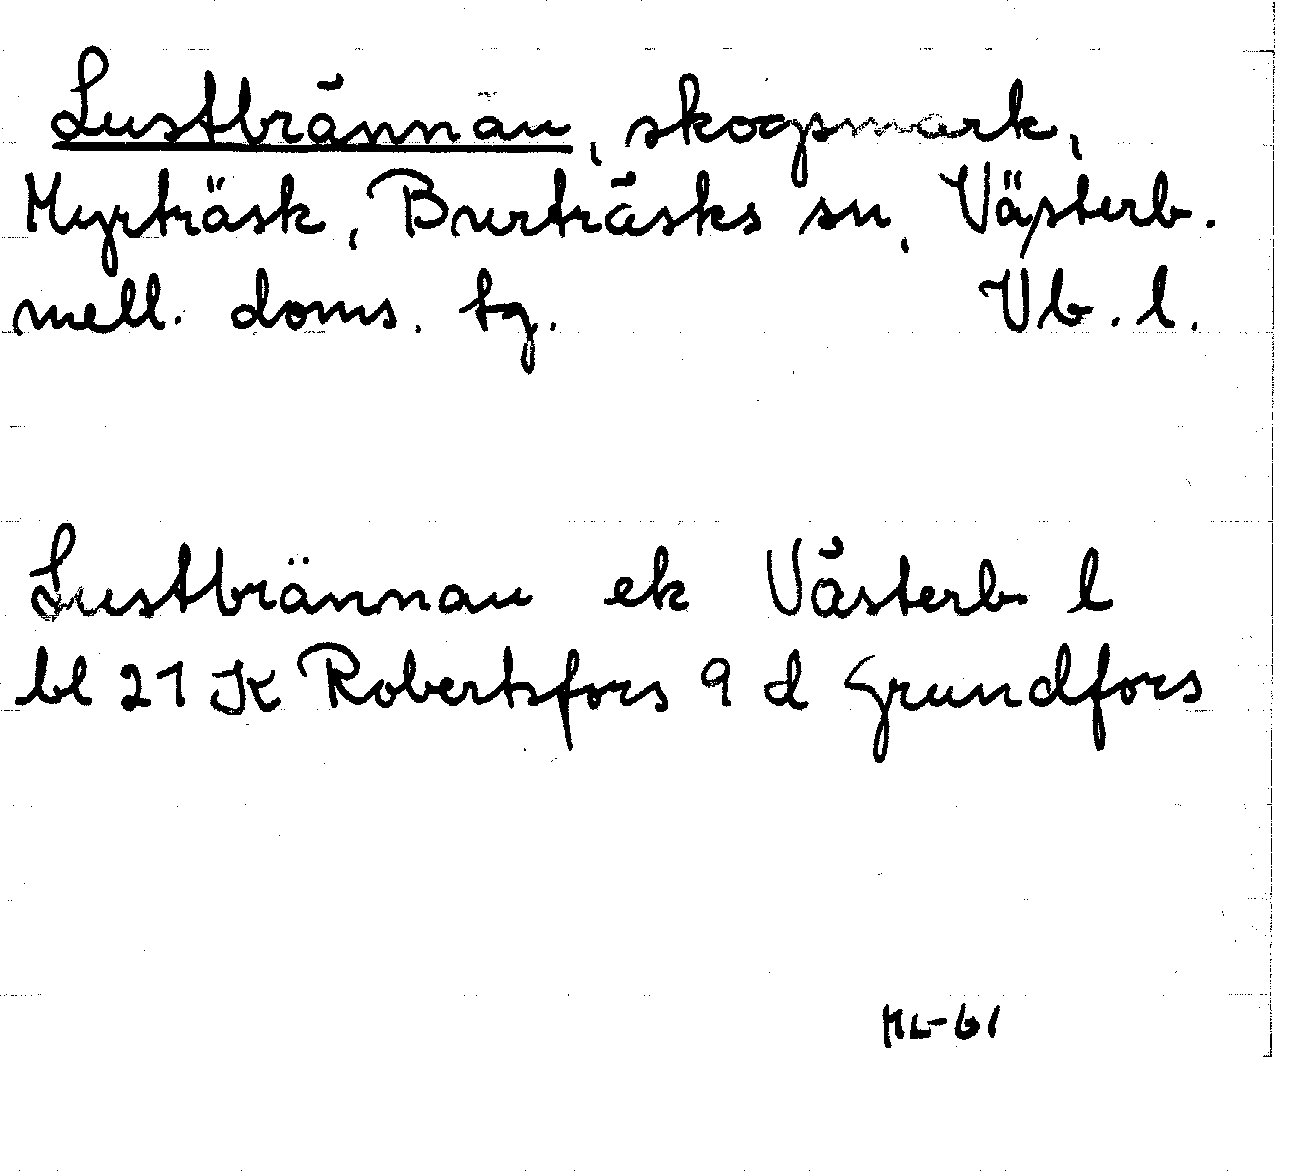 Lustbrännan, skogsmark,
Myrträsk, Burträsks sn, Västerb.
mell. doms. tg. Vb. l.
Lustbrännan ek Västerb l
bl 21 K Robertsfors 9 d Grundfors
ML-61